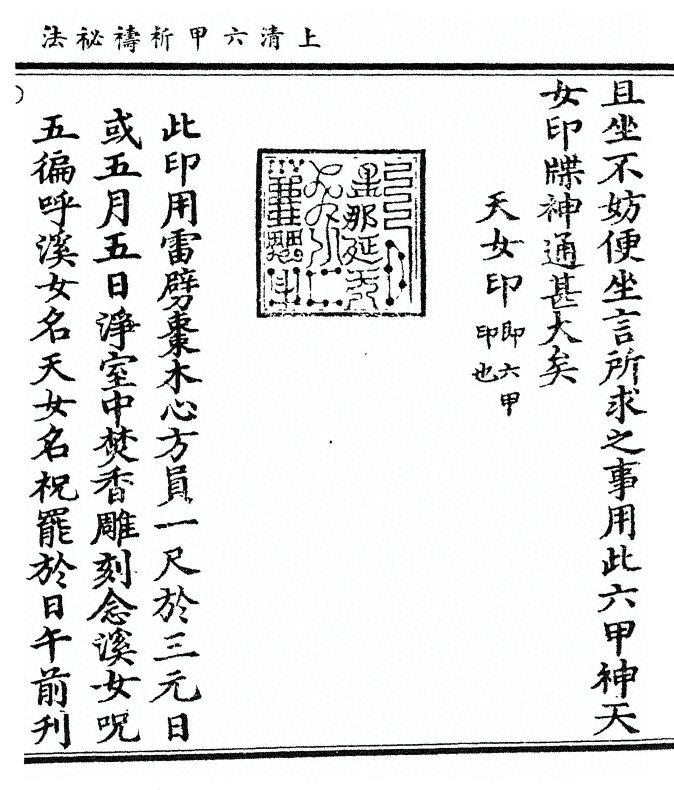 上清六甲祈禱秘法
且坐不妨便坐言所求之事用此六甲神天
女印牒神通甚大矣
天女印即六甲
印也
此印用雷劈棗木心方員一尺於三元日
或五月五日淨室中焚香雕刻念溪女呪
五徧呼溪女名天女名祝罷於日午前刋